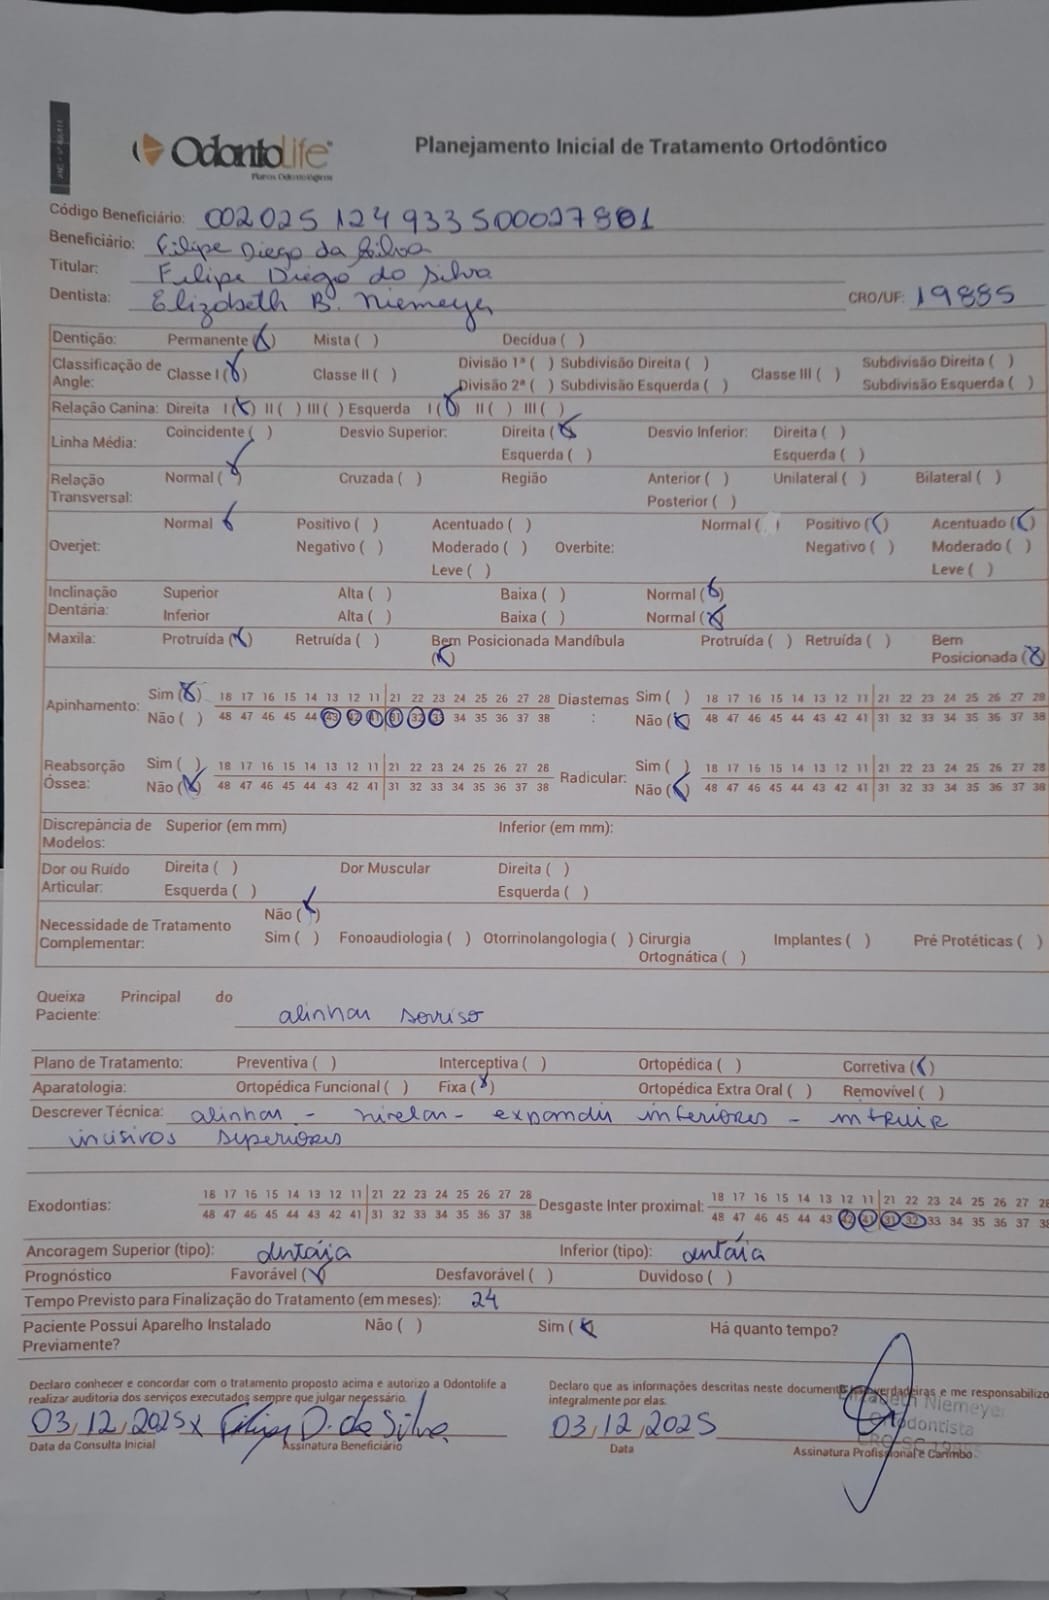 OdontoLife
Planos Odontológicos
Planejamento Inicial de Tratamento Ortodôntico
Código Beneficiário: 002025124933500027801
Beneficiário: Filipe Diego da Silva
Titular: Filipe Diego da Silva
Dentista: Elizabeth B. Niemeyer CRO/UF: 19885
Dentição: Permanente (x) Mista ( ) Decídua ( )
Classificação de Angle: Classe I (x) Classe II ( ) Divisão 1ª ( ) Subdivisão Direita ( ) Classe III ( ) Subdivisão Direita ( )
Divisão 2ª ( ) Subdivisão Esquerda ( ) Subdivisão Esquerda ( )
Relação Canina: Direita I (x) II ( ) III ( ) Esquerda I (x) II ( ) III ( )
Linha Média: Coincidente ( ) Desvio Superior: Direita (x) Desvio Inferior: Direita ( )
Esquerda ( ) Esquerda ( )
Relação Transversal: Normal (x) Cruzada ( ) Região Anterior ( ) Unilateral ( ) Bilateral ( )
Posterior ( )
Normal x Positivo ( ) Acentuado ( ) Normal ( ) Positivo (x) Acentuado (x)
Overjet: Negativo ( ) Moderado ( ) Overbite: Negativo ( ) Moderado ( )
Leve ( ) Leve ( )
Inclinação Dentária: Superior Alta ( ) Baixa ( ) Normal (x)
Inferior Alta ( ) Baixa ( ) Normal (x)
Maxila: Protruída (x) Retruída ( ) Bem Posicionada (x) Mandíbula Protruída ( ) Retruída ( ) Bem Posicionada (x)
Apinhamento: Sim (x) 18 17 16 15 14 13 12 11 21 22 23 24 25 26 27 28 Diastemas : Sim ( ) 18 17 16 15 14 13 12 11 21 22 23 24 25 26 27 28
Não ( ) 48 47 46 45 44 43 42 41 31 32 33 34 35 36 37 38 Não (x) 48 47 46 45 44 43 42 41 31 32 33 34 35 36 37 38
Reabsorção Óssea: Sim ( ) 18 17 16 15 14 13 12 11 21 22 23 24 25 26 27 28 Radicular: Sim ( ) 18 17 16 15 14 13 12 11 21 22 23 24 25 26 27 28
Não (x) 48 47 46 45 44 43 42 41 31 32 33 34 35 36 37 38 Não (x) 48 47 46 45 44 43 42 41 31 32 33 34 35 36 37 38
Discrepância de Modelos: Superior (em mm) Inferior (em mm):
Dor ou Ruído Articular: Direita ( ) Dor Muscular Direita ( )
Esquerda ( ) Esquerda ( )
Necessidade de Tratamento Complementar: Não (x)
Sim ( ) Fonoaudiologia ( ) Otorrinolangologia ( ) Cirurgia Ortognática ( ) Implantes ( ) Pré Protéticas ( )
Queixa Principal do Paciente: alinhar sorriso
Plano de Tratamento: Preventiva ( ) Interceptiva ( ) Ortopédica ( ) Corretiva (x)
Aparatologia: Ortopédica Funcional ( ) Fixa (x) Ortopédica Extra Oral ( ) Removível ( )
Descrever Técnica: alinhar - nivelar - expandir inferiores - intruir
incisivos superiores
Exodontias: 18 17 16 15 14 13 12 11 21 22 23 24 25 26 27 28 Desgaste Inter proximal: 18 17 16 15 14 13 12 11 21 22 23 24 25 26 27 28
48 47 46 45 44 43 42 41 31 32 33 34 35 36 37 38 48 47 46 45 44 43 42 41 31 32 33 34 35 36 37 38
Ancoragem Superior (tipo): dentária Inferior (tipo): dentária
Prognóstico Favorável (x) Desfavorável ( ) Duvidoso ( )
Tempo Previsto para Finalização do Tratamento (em meses): 24
Paciente Possui Aparelho Instalado Previamente? Não ( ) Sim (x) Há quanto tempo?
Declaro conhecer e concordar com o tratamento proposto acima e autorizo a Odontolife a
realizar auditoria dos serviços executados sempre que julgar necessário.
Declaro que as informações descritas neste documento são verdadeiras e me responsabilizo
integralmente por elas.
Elizabeth Niemeyer
Ortodontista
CRO-SC 19885
03/12/2025 x Filipe D. da Silva 03/12/2025
Data da Consulta Inicial Assinatura Beneficiário Data Assinatura Profissional e Carimbo